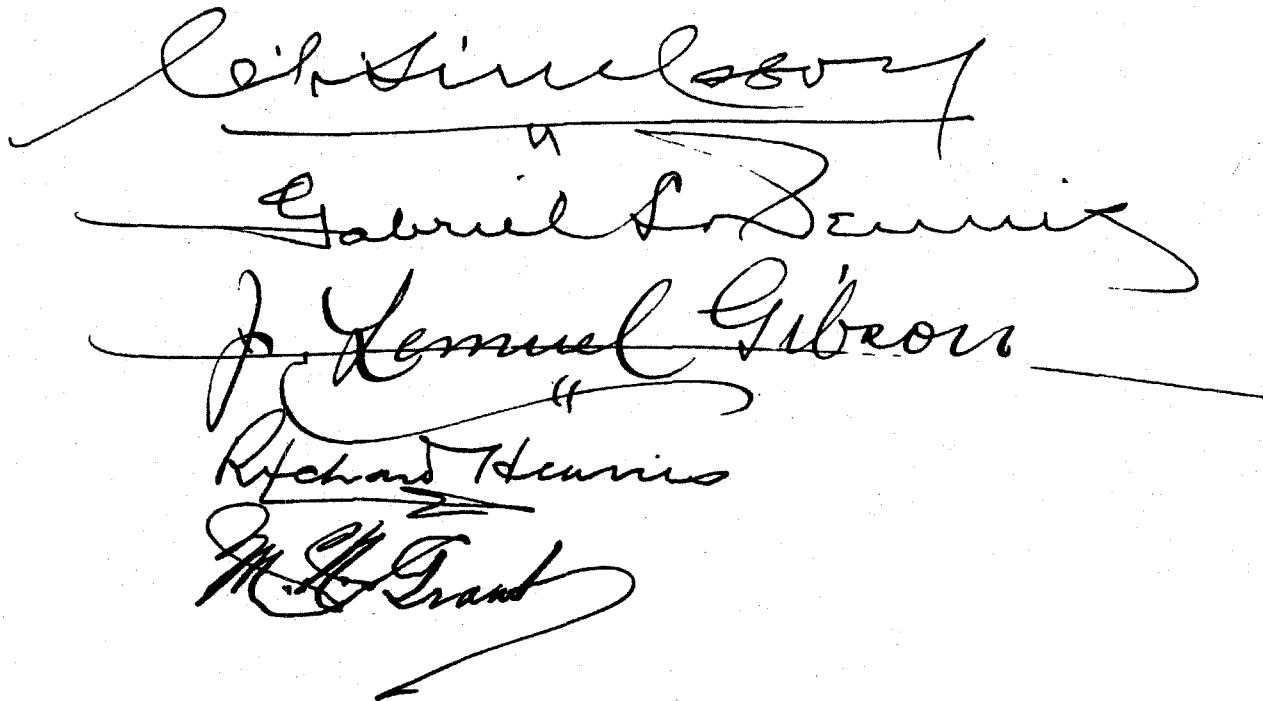 C. L. Simpson
Gabriel L. Dennis
J. Lemuel Gibson
Richard Henries
M. Grant